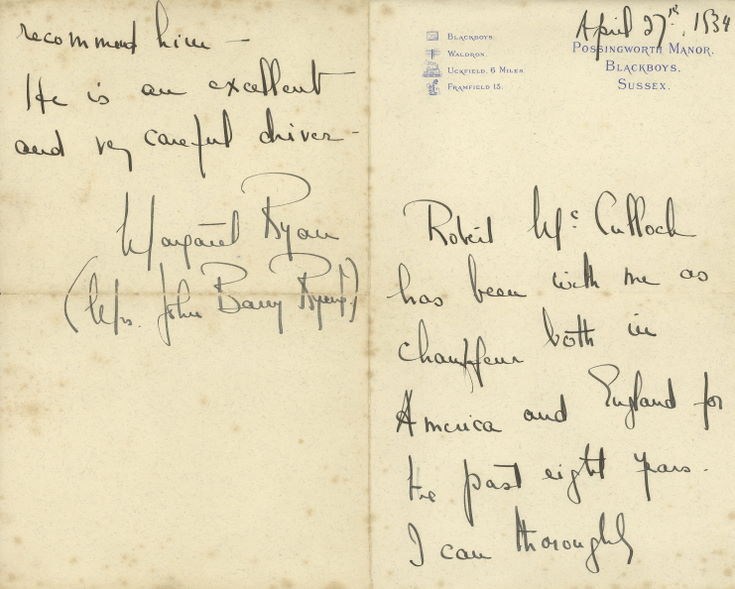 April 27th, 1934
Blackboys.
Waldron.
Uckfield. 6 Miles
Framfield 15.
Possingworth Manor.
Blackboys.
Sussex.
Robert Mc Culloch
has been with me as
chauffeur both in
America and England for
the past eight years.
I can thoroughly
recommend him —
He is an excellent
and very careful driver —
Margaret Ryan
(Mrs. John Barry Ryan Jr.)